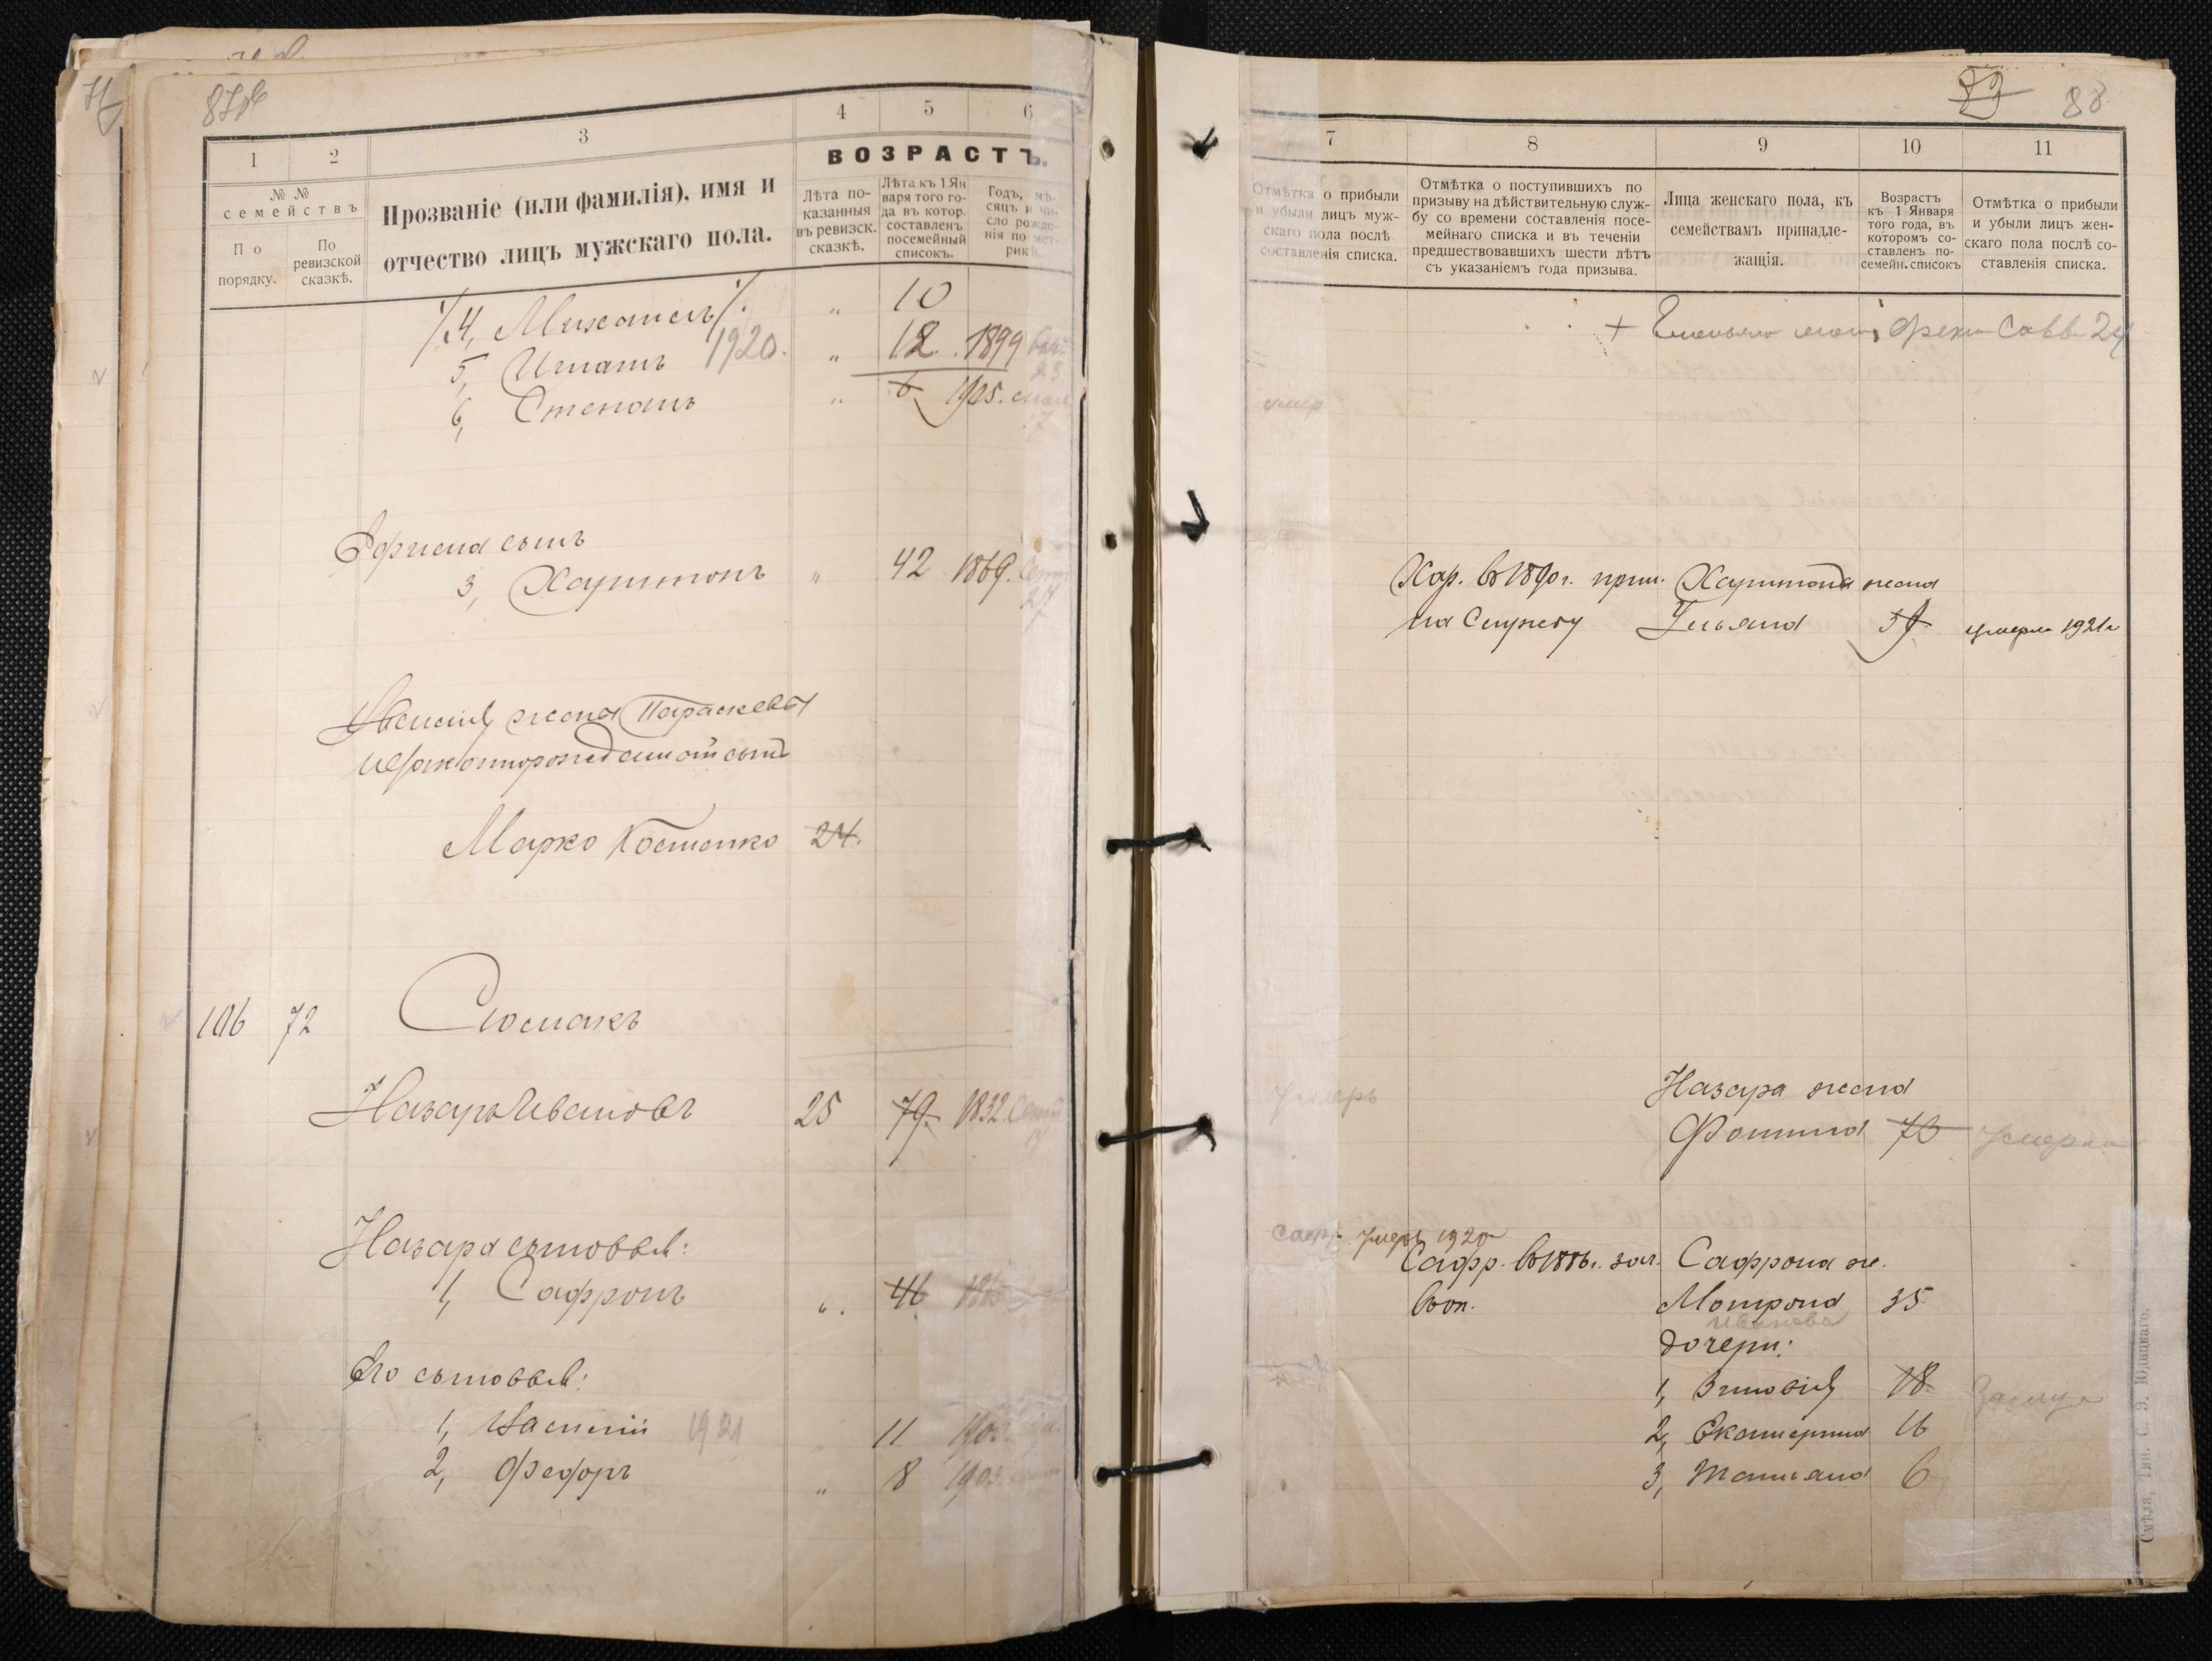 87об
1
2
3
4
5
6
№ №
семействъ
По порядку.
По ревизской сказкѣ.
Прозваніе (или фамилія), имя и
отчество лицъ мужскаго пола.
ВОЗРАСТЪ.
Лѣта по-
казанныя
въ ревизск.
сказкѣ.
Лѣта къ 1 Ян
варя того го-
да въ котор.
составленъ
посемейный
списокъ.
Годъ, мѣ-
сяцъ и чи-
сло рожде-
нія по мет-
рикѣ.
4, Михаилъ " 10
5, Игнатъ 1920. " 12. 1899
23
6, Степанъ " 6 1905.
17
сынъ
3, Харитонъ " 42 1869. Сент
27
жена Параскева
сынъ
Марко Костенко 24.
106 72 Сюмакъ
Назаръ Ивановъ 25 79 1832. Сент
Назара сыновья:
1, Сафронъ " 46
Его сыновья:
1, Василій 1921 " 11
2, Федоръ " 8 1903
89 88
7
8
9
10
11
Отмѣтка о прибыли
и убыли лицъ муж-
скаго пола послѣ
составленія списка.
Отмѣтка о поступившихъ по
призыву на дѣйствительную служ-
бу со времени составленія посе-
мейнаго списка и въ теченіи
предшествовавшихъ шести лѣтъ
съ указаніемъ года призыва.
Лица женскаго пола, къ
семействамъ принадле-
жащія.
Возрастъ
къ 1 Января
того года, въ
которомъ со-
ставленъ по-
семейн. списокъ
Отмѣтка о прибыли
и убыли лицъ жен-
скаго пола послѣ со-
ставленія списка.
24
умер
Хар. въ 1890 г. прин. Харитона жена
на Службу Ульяна умерла 1921г
Назара жена
умеръ Фотина 70 умерла
Сафр. умеръ 1920г
Сафр. въ 1886г. зач. Сафрона ж.
въ оп. Мотрона 35
Иванова
дочери:
1, Зиновія 18 Замуж
2, Екатерина 16
3, Татіана 6
Смѣла, Тип. С. Э. Юдицкаго.